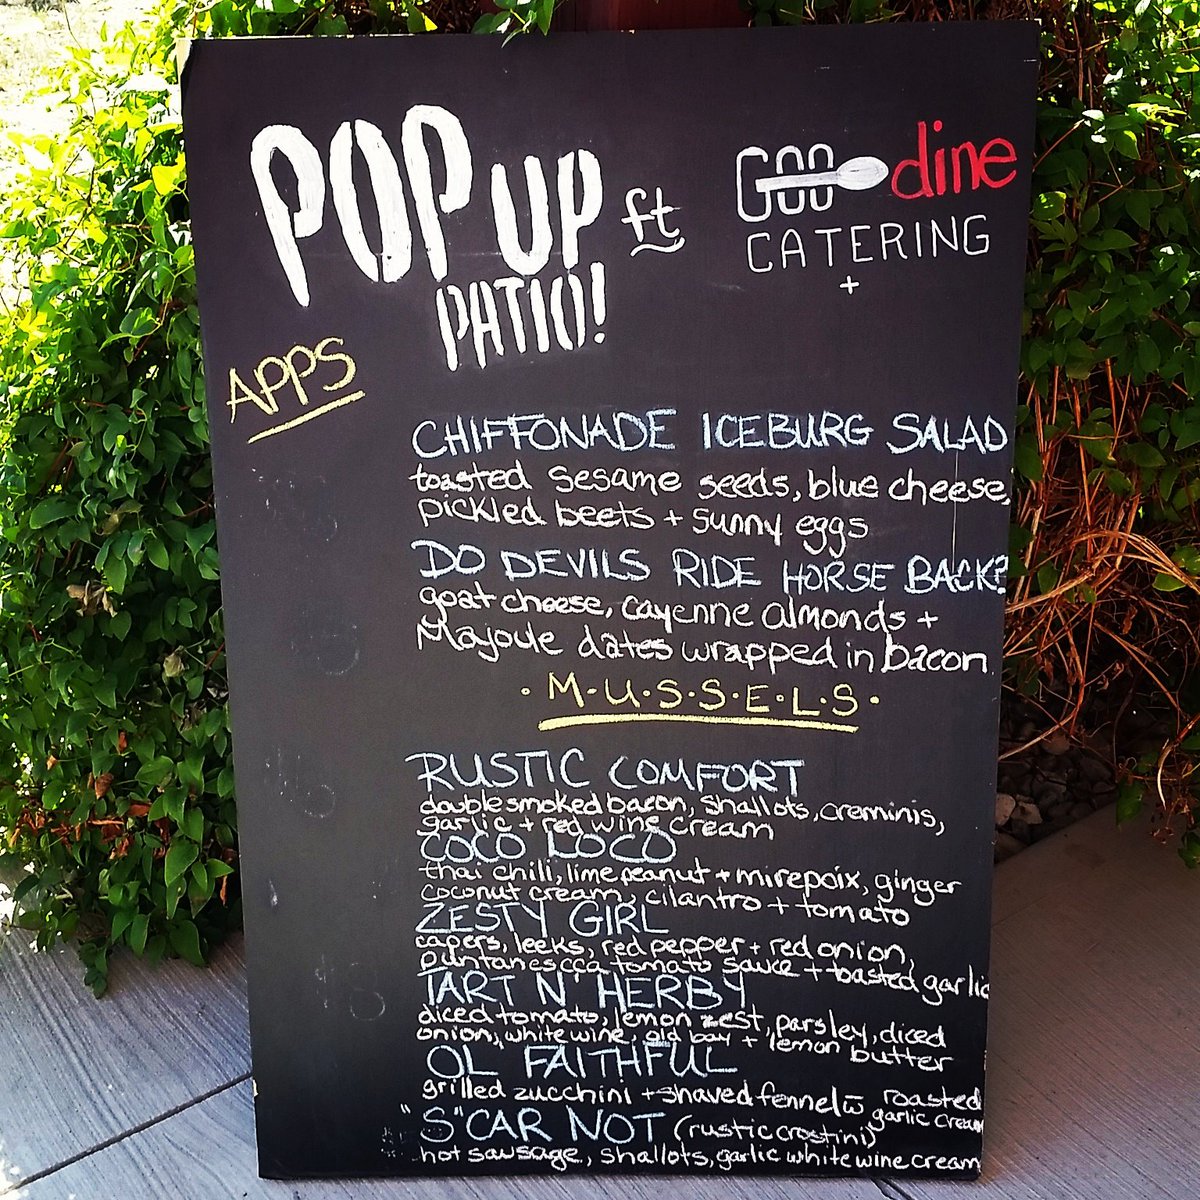 POP UP PATIO! ft
GOO dine
CATERING
+
APPS
CHIFFONADE ICEBURG SALAD
toasted sesame seeds, blue cheese,
pickled beets + sunny eggs
DO DEVILS RIDE HORSE BACK?
goat cheese, cayenne almonds +
Majoule dates wrapped in bacon
·M·U·S·S·E·L·S·
RUSTIC COMFORT
double smoked bacon, shallots, creminis,
garlic + red wine cream
COCO LOCO
thai chili, lime peanut + mirepoix, ginger
coconut cream, cilantro + tomato
ZESTY GIRL
capers, leeks, red pepper + red onion,
puntanescca tomato sauce + toasted garlic
TART N' HERBY
diced tomato, lemon zest, parsley, diced
onion, white wine, old bay + lemon butter
OL' FAITHFUL
grilled zucchini + shaved fennel w̅ roasted
garlic cream
"S"CAR NOT (rustic crostini)
hot sausage, shallots, garlic white wine cream